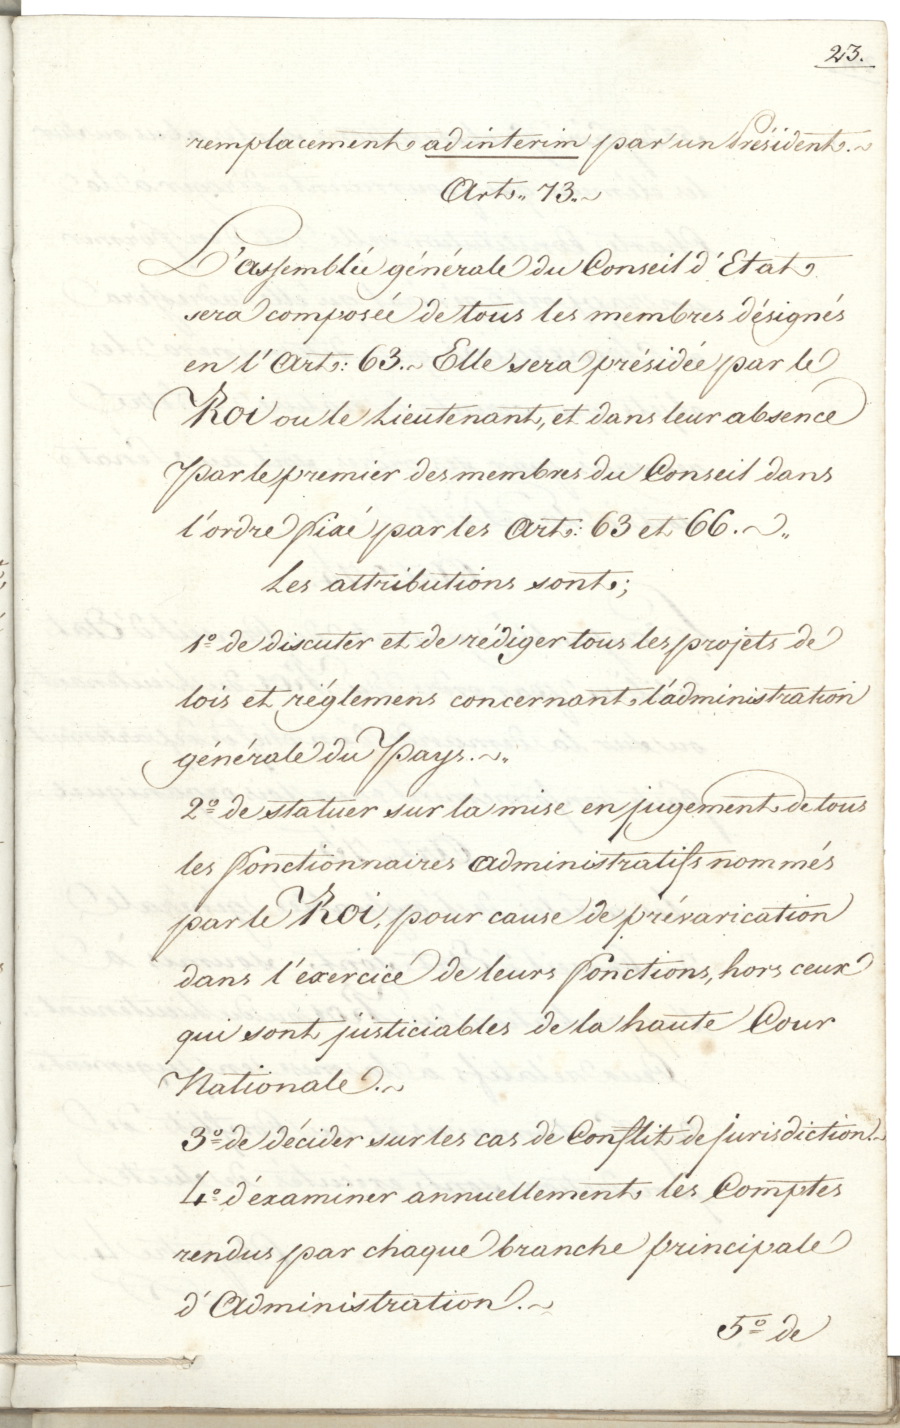 23.
remplacement ad interim par un Président.~
Art. 73.~
L'assemblée générale du Conseil d'Etat
sera composée de tous les membres désignés
en l'Art: 63.~ Elle sera présidée par le
Roi ou le Lieutenant, et dans leur absence
par le premier des membres du Conseil dans
l'ordre fixé par les Art: 63 et 66.~
Les attributions sont;
1º de discuter et de rédiger tous les projets de
lois et réglemens concernant l'administration
générale du Pays.~
2º de statuer sur la mise en jugement de tous
les fonctionnaires administratifs nommés
par le Roi, pour cause de prévarication
dans l'exercice de leurs fonctions, hors ceux
qui sont justiciables de la haute Cour
Nationale.~
3º de décider sur les cas de Conflit de jurisdiction.~
4º d'éxaminer annuellement les Comptes
rendus par chaque branche principale
d'Administration.~
5º de